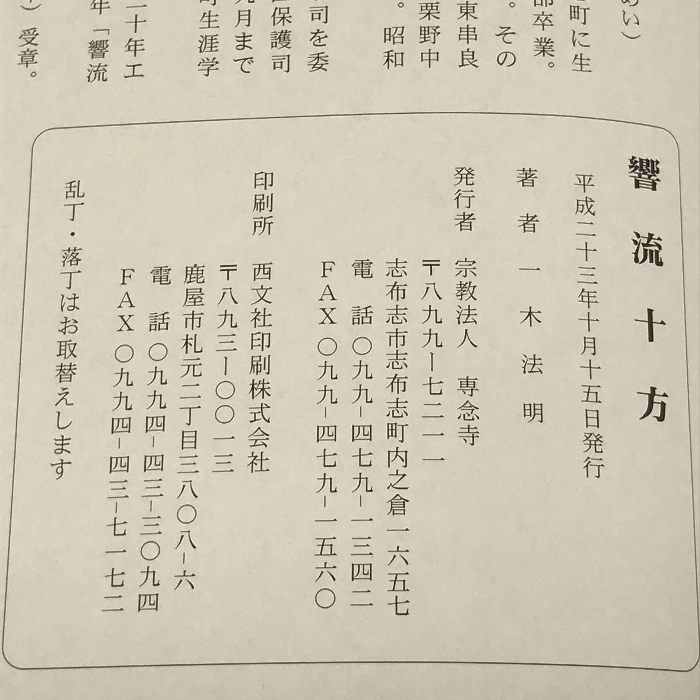 あい）
町に生
部卒業。
。その
東串良
栗野中
。昭和
司を委
保護司
月まで
町生涯学
二十年エ
年「響流
）受章。
響流十方
平成二十三年十月十五日発行
著者 一木法明
発行者 宗教法人 専念寺
〒八九九ー七二一一
志布志市志布志町内之倉一六五七
電 話 〇九九ー四七九ー一三四二
ＦＡＸ 〇九九ー四七九ー一五六〇
印刷所 西文社印刷株式会社
〒八九三ー〇〇一三
鹿屋市札元二丁目三八〇八ー六
電 話 〇九九四ー四三ー三〇九四
ＦＡＸ 〇九九四ー四三ー七一七二
乱丁・落丁はお取替えします